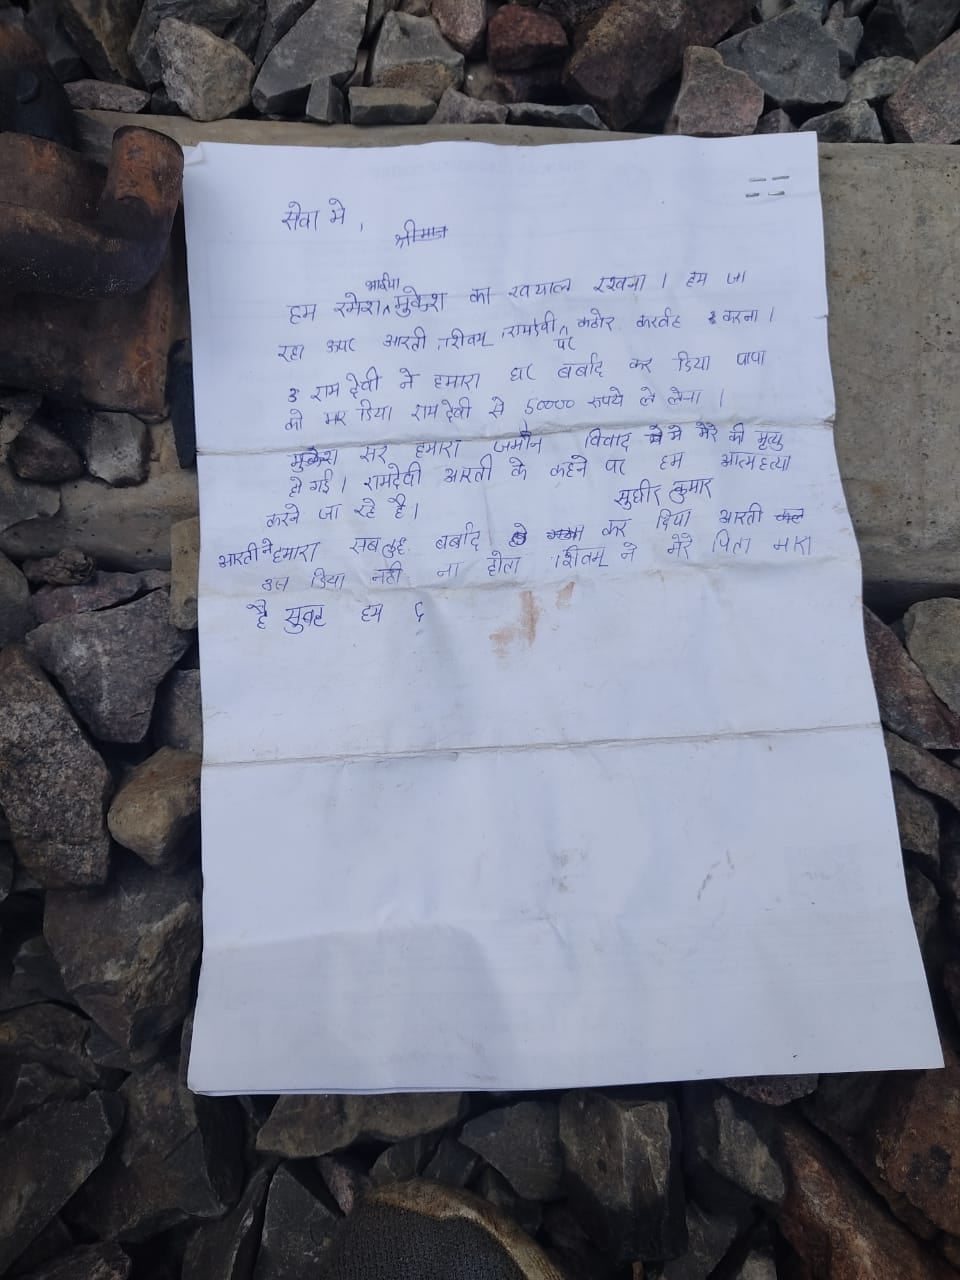 सेवा मे ,
श्रीमान
भाईया
हम रमेश ^ मुकेश का ख्याल रखना । हम जा
रहा ऊपर आरती , शिवम् , रामदेवी ^ कठोर करना ।
पर
राम देवी ने हमारा घर बर्बाद कर दिया पापा
को मार दिया राम देवी से 50000 रूपये ले लेना ।
मुकेश सर हमारा जमीन विवाद मे मेरे की मृत्यु
हो गई । रामदेवी आरती के कहने पर हम आत्महत्या
करने जा रहे है । सुधीर कुमार
आरती ने हमारा सब कुछ बर्बाद कर दिया आरती
डिया नही ना होता शिवम् ने मेरे पिता मारा
है सुबह हम 6